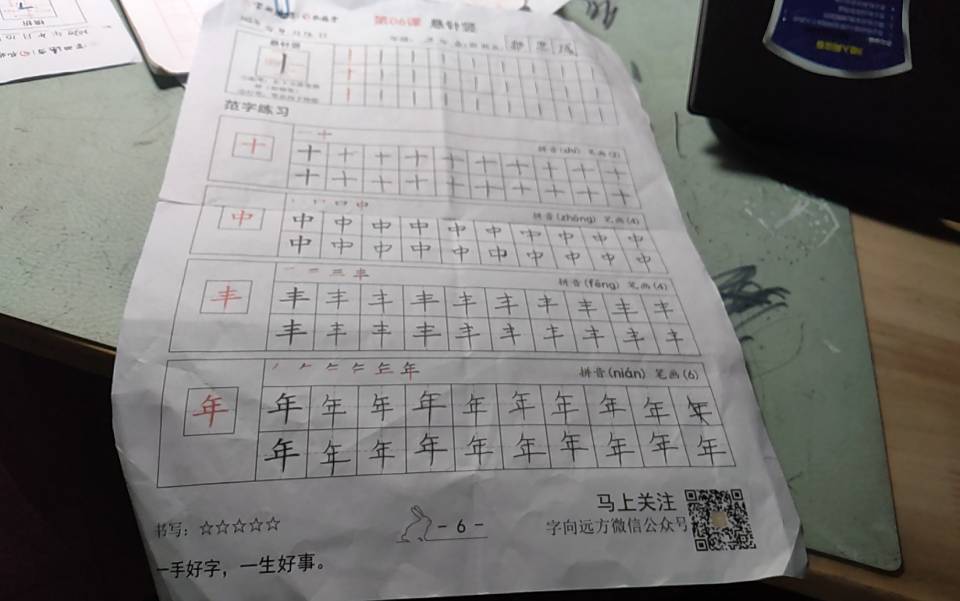 第06课 悬针竖
悬针竖
范字练习
一 十
十 拼音(shí) 笔画(2)
十 十 十 十 十 十 十 十 十 十
十 十 十 十 十 十 十 十 十 十
中 拼音(zhōng) 笔画(4)
中 中 中 中 中 中 中 中 中 中
中 中 中 中 中 中 中 中 中 中
一 二 三 丰
丰 拼音(fēng) 笔画(4)
丰 丰 丰 丰 丰 丰 丰 丰 丰 丰
丰 丰 丰 丰 丰 丰 丰 丰 丰 丰
年 拼音(nián) 笔画(6)
年 年 年 年 年 年 年 年 年 年
年 年 年 年 年 年 年 年 年 年
马上关注
书写：☆☆☆☆☆ - 6 - 字向远方微信公众号
一手好字，一生好事。